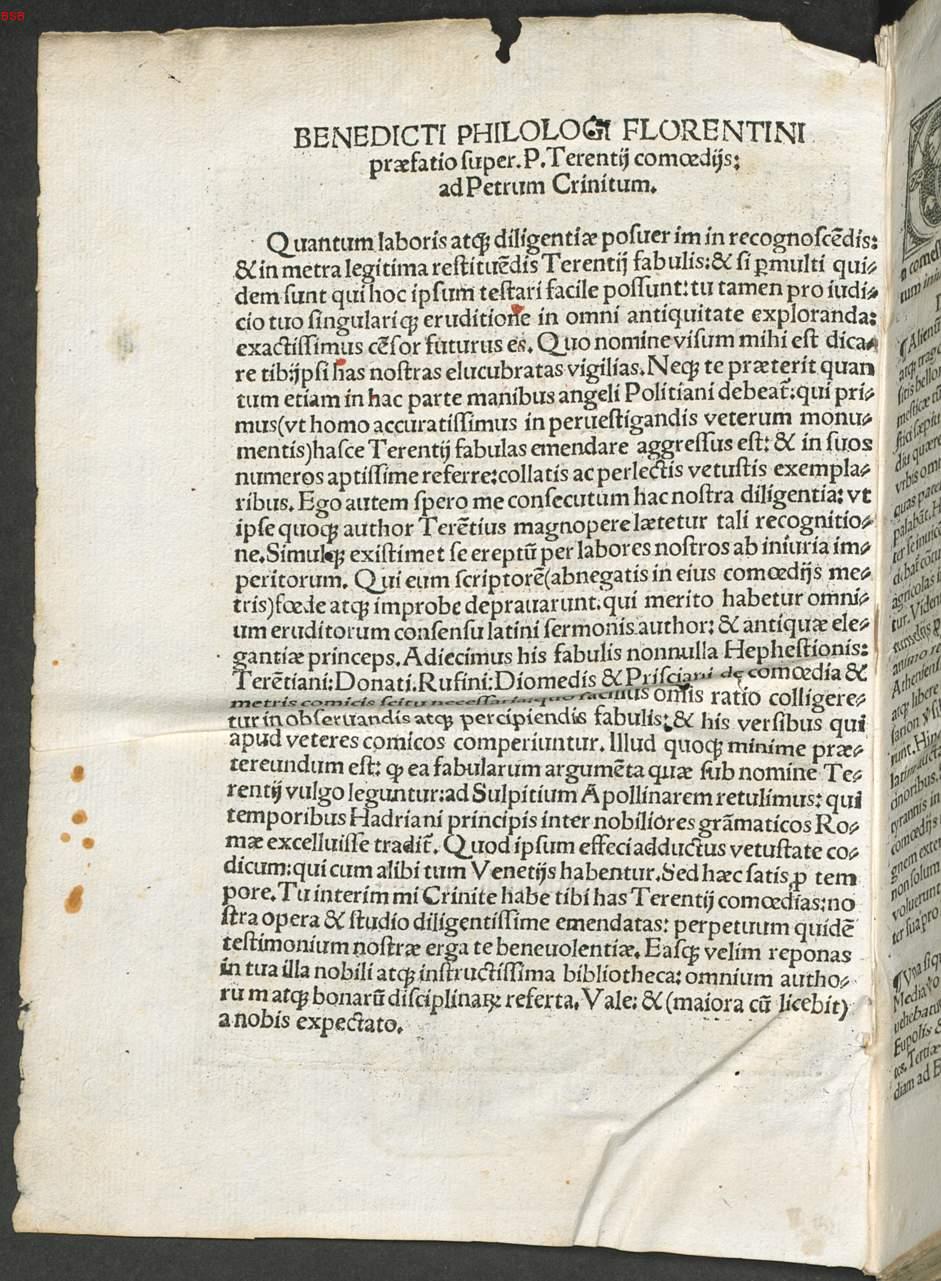 BSB
BENEDICTI PHILOLOGI FLORENTINI
præfatio super. P. Terentij comœdijs:
ad Petrum Crinitum.
Quantum laboris atq; diligentiæ posuerim in recognoscēdis:
& in metra legitima restituēdis Terentij fabulis: & si ꝑmulti qui-
dem sunt qui hoc ipsum testari facile possunt: tu tamen pro iudi-
cio tuo singulariq; eruditione in omni antiquitate exploranda:
exactissimus cēsor futurus es. Quo nomine visum mihi est dica-
re tibijpsi has nostras elucubratas vigilias. Neq; te præterit quan
tum etiam in hac parte manibus angeli Politiani debeat̃: qui pri-
mus (vt homo accuratissimus in peruestigandis veterum monu-
mentis) hasce Terentij fabulas emendare aggressus est: & in suos
numeros aptissime referre: collatis ac perlectis vetustis exempla-
ribus. Ego autem spero me consecutum hac nostra diligentia: vt
ipse quoq; author Terētius magnopere lætetur tali recognitio-
ne. Simulq; existimet se ereptū per labores nostros ab iniuria im-
peritorum. Qui eum scriptorē (abnegatis in eius comœdijs me-
tris) fœde atq; improbe deprauarunt. qui merito habetur omni-
um eruditorum consensu latini sermonis author: & antiquæ ele-
gantiæ princeps. Adiecimus his fabulis nonnulla Hephestionis:
Terētiani: Donati. Rufini: Diomedis & Prisciani de comœdia &
metris comicis scitu necessaria: quo facilius om̄is ratio colligere-
tur in obseruandis atq; percipiendis fabulis: & his versibus qui
apud veteres comicos comperiuntur. Illud quoq; minime præ-
tereundum est: ꝙ ea fabularum argumēta quæ sub nomine Te-
rentij vulgo leguntur: ad Sulpitium Apollinarem retulimus: qui
temporibus Hadriani principis inter nobiliores grāmaticos Ro-
mæ excelluisse tradit̃. Quod ipsum effeci adductus vetustate co-
dicum: qui cum alibi tum Venetijs habentur. Sed hæc satis ꝓ tem
pore. Tu interim mi Crinite habe tibi has Terentij comœdias: no
stra opera & studio diligentissime emendatas: perpetuum quidē
testimonium nostræ erga te beneuolentiæ. Easq; velim reponas
in tua illa nobili atq; instructissima bibliotheca: omnium autho-
rum atq; bonarū disciplinaꝝ referta. Vale: & (maiora cū licebit)
a nobis expectato.